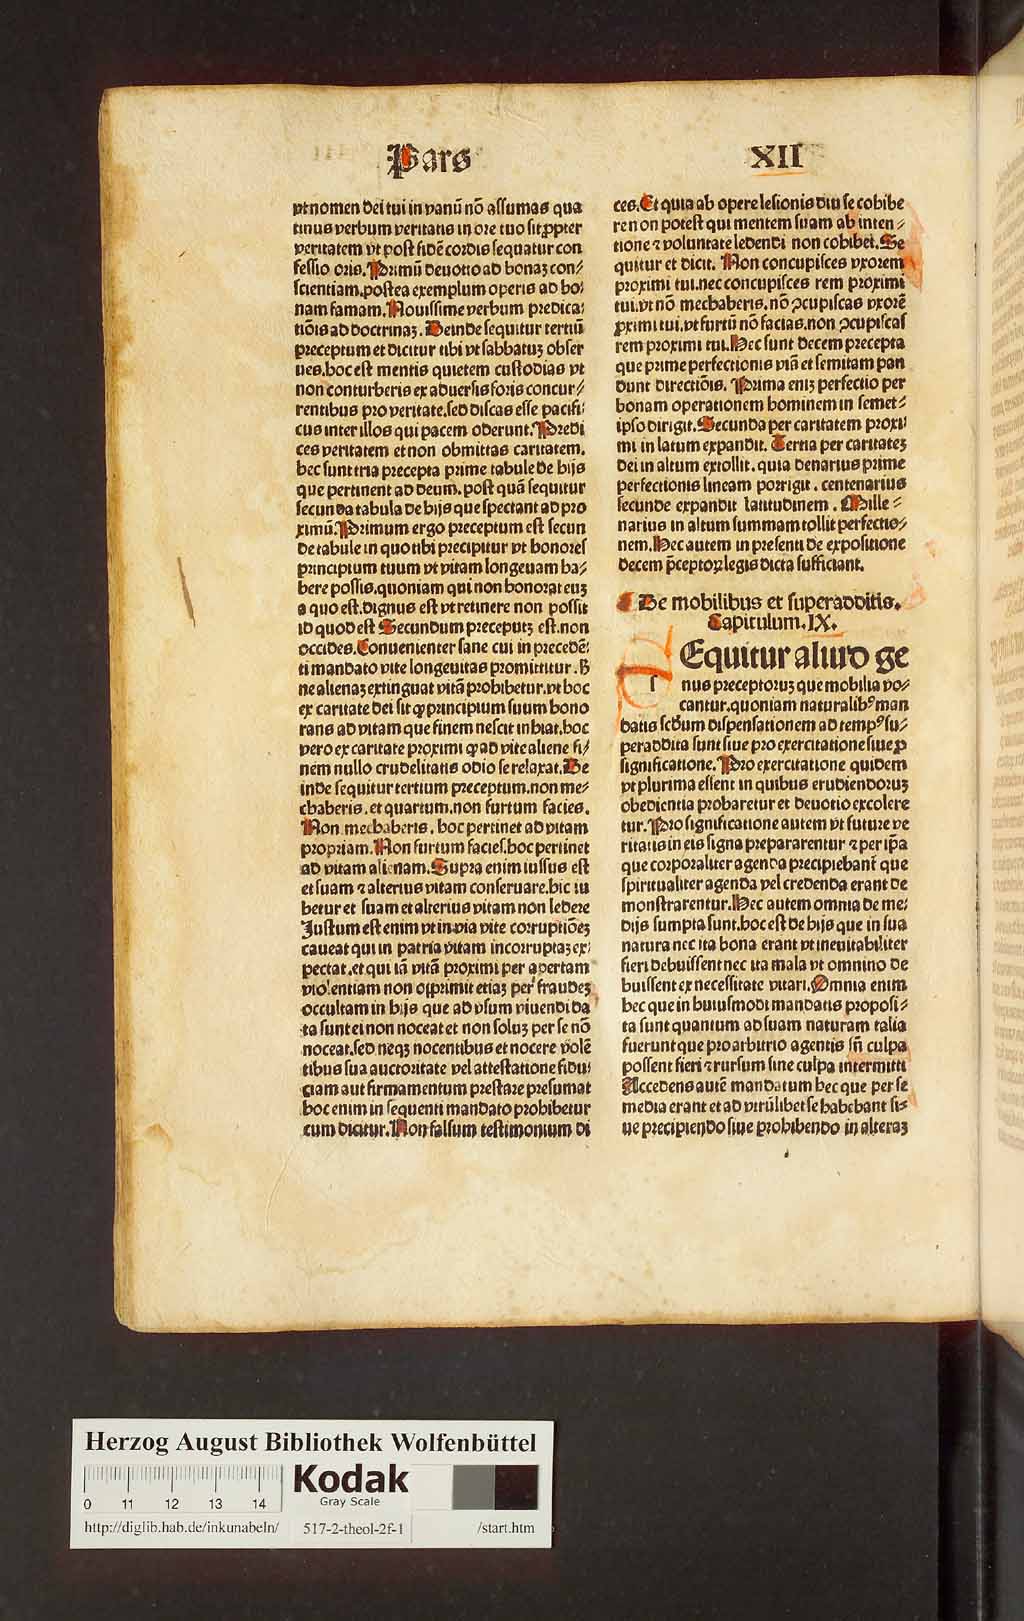 Pars XII
vt nomen dei tui in vanū nō assumas qua
tinus verbum veritatis in ore tuo sit ꝓpter
veritatem vt post fidē cordis sequatur con
fessio oris. Primū deuotio ad bonaꝫ con-
scientiam. postea exemplum operis ad bo-
nam famam. Nouissime verbum predica-
tiōis ad doctrinaꝫ. Deinde sequitur tertiū
preceptum et dicitur tibi vt sabbatuꝫ obser
ues. hoc est mentis quietem custodias vt
non conturberis ex aduersis foris concur-
rentibus pro veritate. sed discas esse pacifi-
cus inter illos qui pacem oderunt. Predi
ces veritatem et non obmittas caritatem.
hec sunt tria precepta prime tabule de hijs
que pertinent ad deum. post quā sequitur
secunda tabula de hijs que spectant ad pro
ximū. Primum ergo preceptum est secun
de tabule in quo tibi precipitur vt honores
principium tuum vt vitam longeuam ha-
bere possis. quoniam qui non honorat euꝫ
a quo est. dignus est vt retinere non possit
id quod est Secundum preceputꝫ est. non
occides. Conuenienter sane cui in precedē-
ti mandato vite longeuitas promittitur. H
ne alienaꝫ extinguat vitā prohibetur. vt hoc
ex caritate dei sit ꝙ principium suum hono
rans ad vitam que finem nescit inhiat. hoc
vero ex caritate proximi ꝙ ad vite aliene fi-
nem nullo crudelitatis odio se relaxat. De
inde sequitur tertium preceptum. non me-
chaberis. et quartum. non furtum facies.
Non mechaberis. hoc pertinet ad vitam
propriam. Non furtum facies. hoc pertinet
ad vitam alienam. Supra enim iussus est
et suam ⁊ alterius vitam conseruare. hic iu
betur et suam et alterius vitam non ledere
Justum est enim vt in via vite corruptiōeꝫ
caueat qui in patria vitam incorruptaꝫ ex-
pectat. et qui iā vitā proximi per apertam
violentiam non opprimit etiaꝫ per fraudeꝫ
occultam in hijs que ad vsum viuendi da
ta sunt ei non noceat et non soluꝫ per se nō
noceat. sed neqꝫ nocentibus et nocere volē
tibus sua auctoritate vel attestatione fidu-
ciam aut firmamentum prestare presumat
hoc enim in sequenti mandato prohibetur
cum dicitur. Non falsum testimonium di
ces. Et quia ab opere lesionis diu se cohibe
re non potest qui mentem suam ab inten-
tione ⁊ voluntate ledendi non cohibet. Se
quitur et dicit. Non concupisces vxorem
proximi tui. nec concupisces rem proximi
tui. vt nō mechaberis. nō ꝯcupiscas vxorē
ꝓximi tui. vt furtū nō facias. non ꝯcupiscas
rem proximi tui. Hec sunt decem precepta
que prime perfectionis viā et semitam pan
dunt directiōis. Prima eniꝫ perfectio per
bonam operationem hominem in semet-
ipso dirigit. Secunda per caritatem proxi-
mi in latum expandit. Tertia per caritateꝫ
dei in altum extollit. quia denarius prime
perfectionis lineam porrigit. centenarius
secunde expandit latitudinem. Mille-
narius in altum summam tollit perfectio-
nem. Hec autem in presenti de expositione
decem p̄ceptoꝝ legis dicta sufficiant.
De mobilibus et superadditis.
Capitulum. IX.
sEquitur aliud ge
nus preceptoruꝫ que mobilia vo-
cantur. quoniam naturalibꝰ man
datis scd̄um dispensationem ad tempꝰ su-
peraddita sunt siue pro exercitatione siue ꝓ
significatione. Pro exercitatione quidem
vt plurima essent in quibus erudiendoruꝫ
obedientia probaretur et deuotio excolere
tur. Pro significatione autem vt future ve
ritatis in eis signa prepararentur ⁊ per ip̄a
que corporaliter agenda precipiebant̄ que
spiritualiter agenda vel credenda erant de
monstrarentur. Hec autem omnia de me-
dijs sumpta sunt. hoc est de hijs que in sua
natura nec ita bona erant vt ineuitabiliter
fieri debuissent nec ita mala vt omnino de
buissent ex necessitate vitari. Omnia enim
hec que in huiusmodi mandatis proposi-
ta sunt quantum ad suam naturam talia
fuerunt que pro arbitrio agentis sn̄ culpa
possent fieri ⁊ rursum sine culpa intermitti
Accedens autē mandatum hec que per se
media erant et ad vtrūlibet se habebant si-
ue precipiendo siue prohibendo in alteraꝫ
Herzog August Bibliothek Wolfenbüttel
0 11 12 13 14
Kodak
Gray Scale
http://diglib.hab.de/inkunabeln/ 517-2-theol-2f-1 /start.htm